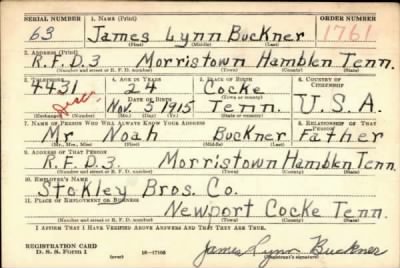 SERIAL NUMBER 1. NAME (Print) ORDER NUMBER
63 James Lynn Buckner 1761
(First) (Middle) (Last)
2. ADDRESS (Print)
R.F.D.3 Morristown Hamblen Tenn.
(Number and street or R. F. D. number) (Town) (County) (State)
3. TELEPHONE 4. AGE IN YEARS 5. PLACE OF BIRTH 6. COUNTRY OF CITIZENSHIP
4431 24 Cocke
(Town or county)
DATE OF BIRTH
Nov. 5, 1915 Tenn. U.S.A.
(Exchange) (Number) (Mo.) (Day) (Yr.) (State or country)
7. NAME OF PERSON WHO WILL ALWAYS KNOW YOUR ADDRESS 8. RELATIONSHIP OF THAT PERSON
Mr Noah Buckner Father
(Mr., Mrs., Miss) (First) (Middle) (Last)
9. ADDRESS OF THAT PERSON
R.F.D.3. Morristown Hamblen Tenn.
(Number and street or R. F. D. number) (Town) (County) (State)
10. EMPLOYER'S NAME
Stokley Bros. Co.
11. PLACE OF EMPLOYMENT OR BUSINESS
Newport Cocke Tenn.
(Number and street or R. F. D. number) (Town) (County) (State)
I AFFIRM THAT I HAVE VERIFIED ABOVE ANSWERS AND THAT THEY ARE TRUE.
REGISTRATION CARD
D. S. S. Form 1 (over) 16—17105 James Lynn Buckner
(Registrant's signature)